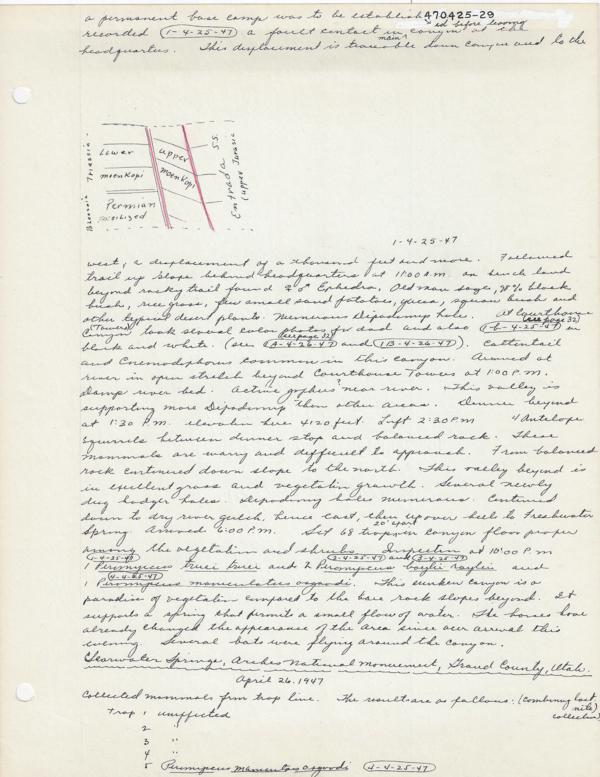 a permanent base camp was to be establish 470425-29
ed before leaving
recorded (1-4-25-47) a fault contact in main canyon at the
headquarters. This displacement is traceable down canyon and to the
Triassic
Lower
moenKopi
Permian
upper
moenKopi
Entrada S.S.
(upper Jurassic
1-4-25-47
west, a displacement of a thousand feet and more. Followed
trail up slope behind headquarters at 11:00 A.M. on bench land
beyond rocky trail found Ephedra, Old man sage, black
bush, rice grass, few small sand potatoes, squaw bush and
other typical desert plants. Numerous Dipodomys holes. At Courthouse
(Towers) (see page 32)
Canyon took several color photos for dad and also (1B-4-25-47) in
(see page 32)
black and white. (see (A-4-26-47) and (1B-4-26-47)). Cottontail
and Cnemodophorus common in this canyon. Arrived at
river in open stretch beyond Courthouse Towers at 1:00 P.M.
Damp river bed. Active gophers? near river. This valley is
supporting more Dipodomys than other areas. Dinner beyond
at 1:30 P.M. elevation here 4120 feet. Left 2:30 P.M 4 Antelope
Squirrels between dinner stop and balanced rock. These
mammals are wary and difficult to approach. From balanced
rock continued down slope to the north. This valley beyond is
in excellent grass and vegetation growth. Several newly
dug badger holes. Dipodomys holes numerous. Continued
down to dry river gulch, hence east, then up over hill to Freshwater
20' apart
Spring. Arrived 6:00 P.M. Set 68 traps in canyon floor proper
among the vegetation and shrubs. Inspection at 10:00 P.m
(1-4-25-47) (2-4-25-47) and (3-4-25-47)
1 Peromyscus truei truei and 2 Peromyscus boylii and
(4-4-25-47)
1 Peromyscus maniculatus osgoodi. This sunken canyon is a
paradise of vegetation compared to the bare rock slopes beyond. It
supports a spring that permits a small flow of water. The horses have
already changed the appearance of the area since our arrival this
evening. Several bats were flying around the canyon.
Clearwater Springs, Arches National Monument, Grand County, Utah.
April 26, 1947
Collected mammals from trap line. The result are as follows: (combining last
nite)
collection)
Trap 1 unaffected
2 "
3 "
4 "
5 Peromyscus maniculatus osgoodi (4-4-25-47)